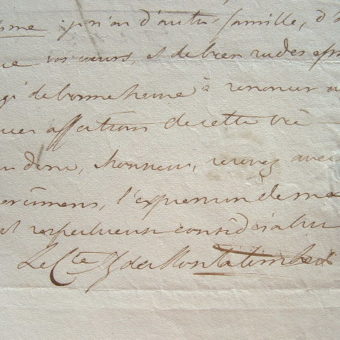 je n'ai d'autre famille, d'a
que vos vœux, et de bien rudes
de bonne heure à renoncer a
affections de cette vie
donc, Monsieur, recevez avec
l'expression de ma
et respectueuse considération
Le Cte de Montalembert